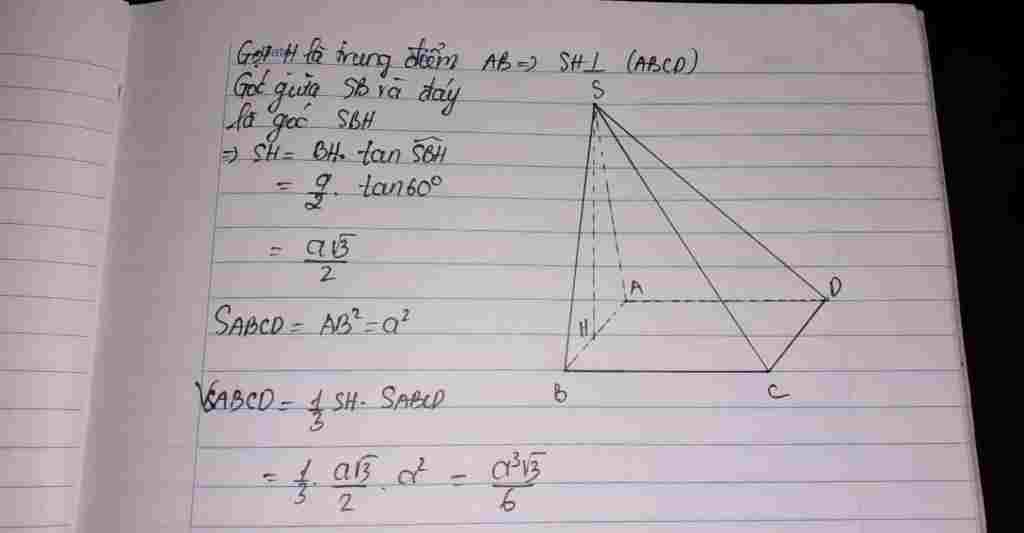 Gọi H là trung điểm AB => SH⊥ (ABCD)
Góc giữa SB và đáy
là góc SBH
=> SH = BH. tan \widehat{SBH}
= \frac{a}{2}. tan60°
= \frac{a\sqrt{3}}{2}
S_{ABCD} = AB^2 = a^2
V_{SABCD} = \frac{1}{3} SH. S_{ABCD}
= \frac{1}{3}. \frac{a\sqrt{3}}{2}. a^2 = \frac{a^3\sqrt{3}}{6}
S
A
D
H
B
C